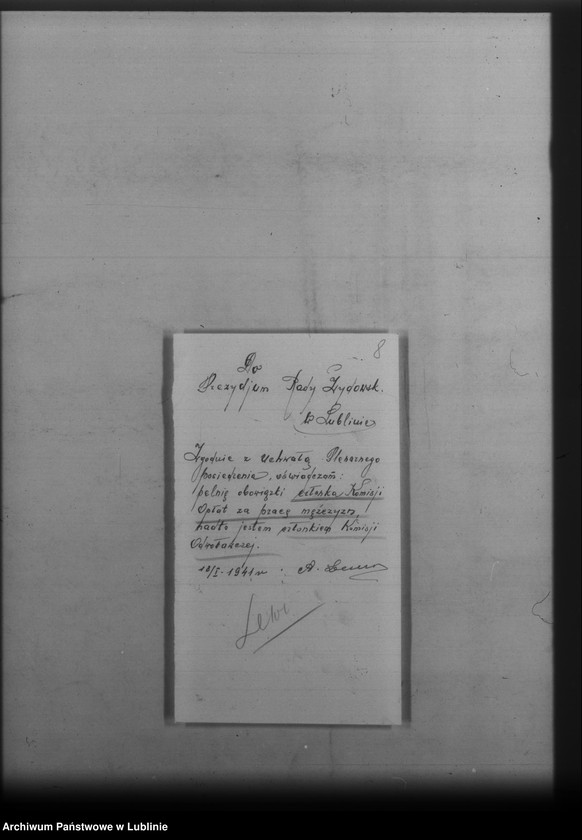 8
Do
Prezydjum Rady Żydowsk.
w Lublinie
Zgodnie z uchwałą Plenarnego
posiedzenia, oświadczam:
pełnię obowiązki członka Komisji
Opłat za pracę mężczyzn,
nadto jestem członkiem Komisji
Odwoławczej.
10/I. 1941 r A.
Lewi
Archiwum Państwowe w Lublinie